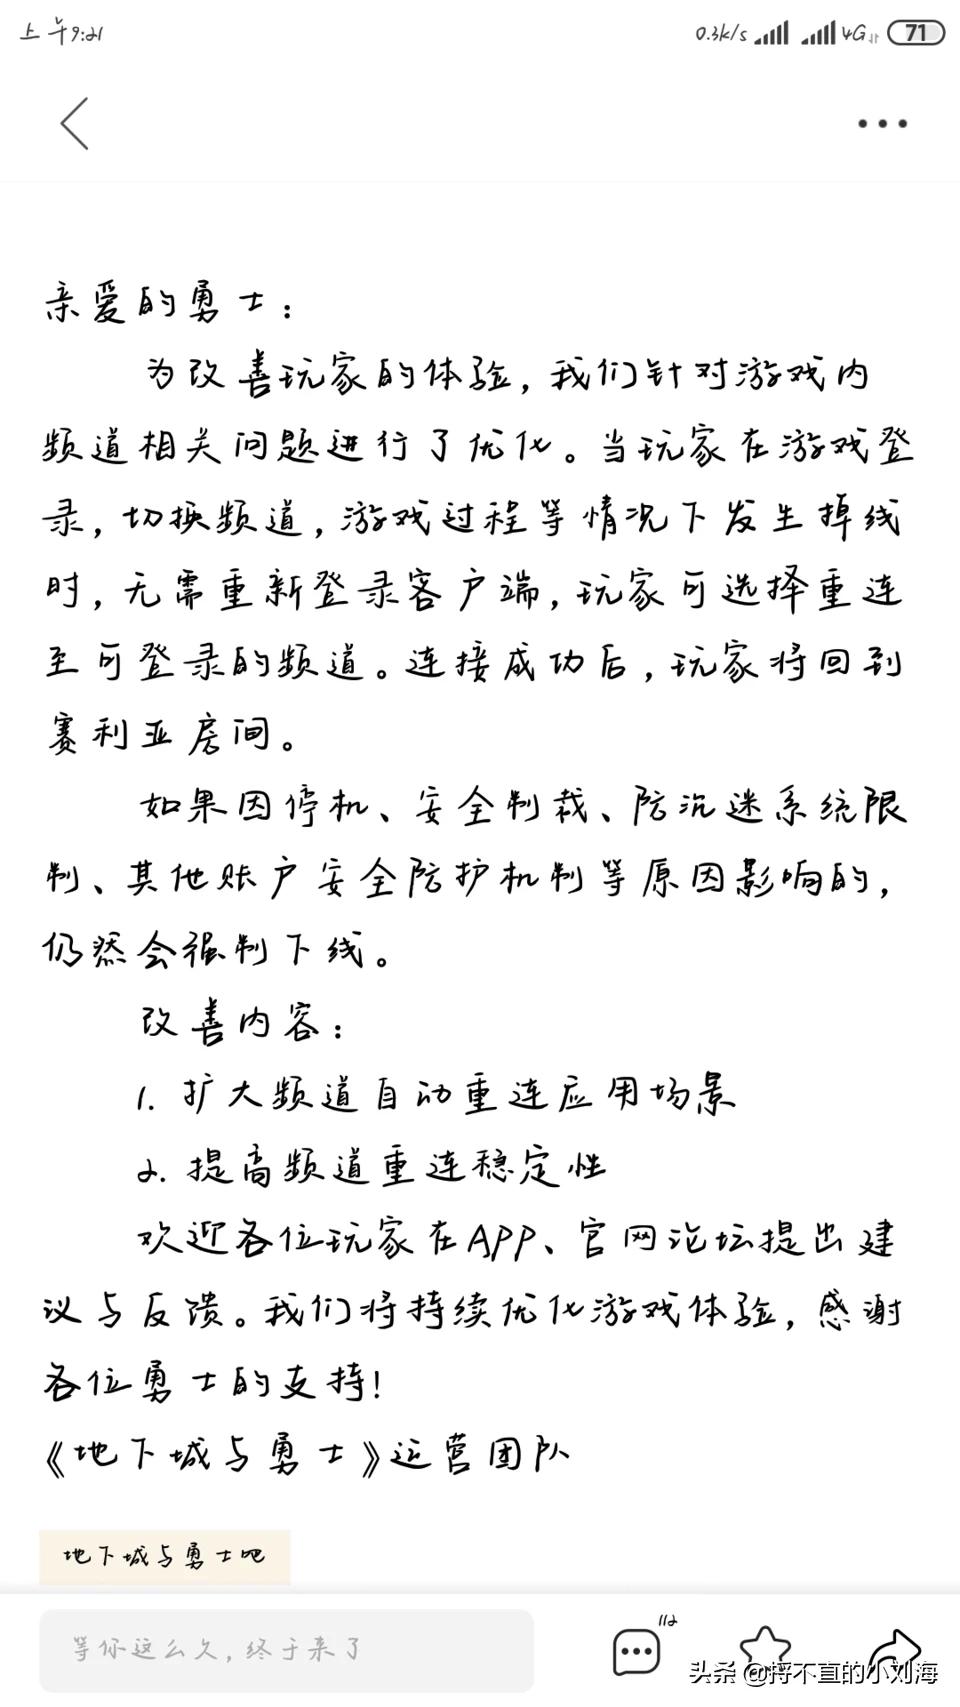 上午9:21
0.3k/s 4G 71
亲爱的勇士：
为改善玩家的体验，我们针对游戏内
频道相关问题进行了优化。当玩家在游戏登
录，切换频道，游戏过程等情况下发生掉线
时，无需重新登录客户端，玩家可选择重连
至可登录的频道。连接成功后，玩家将回到
赛利亚房间。
如果因停机、安全制裁、防沉迷系统限
制、其他账户安全防护机制等原因影响的，
仍然会强制下线。
改善内容：
1. 扩大频道自动重连应用场景
2. 提高频道重连稳定性
欢迎各位玩家在APP、官网论坛提出建
议与反馈。我们将持续优化游戏体验，感谢
各位勇士的支持！
《地下城与勇士》运营团队
地下城与勇士吧
等你这么久，终于来了
112
头条 @捋不直的小刘海